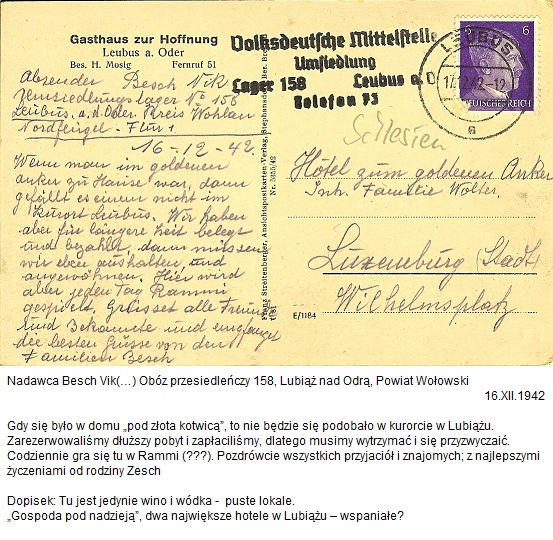 Gasthaus zur Hoffnung
Leubus a. Oder
Bes. H. Mosig Fernruf 51
Absender Besch Vik
Umsiedlungslager No 158
Leubus, a. d. Oder Kreis Wohlau
Nordflügel - Flur 1
16-12-42.
Wenn man im goldenen
Anker zu Hause war, dann
gefällt es einem nicht im
Kurort Leubus. Wir haben
aber für längere Zeit belegt
und bezahlt, dann müssen
wir eben aushalten, und
angewöhnen. Hier wird
aber jeden Tag Rammi
gespielt. Grüsset alle Freunde
und Bekannte und empfanget
die besten Grüsse von den
Familien Besch
Franz Streitenberger, Ansichtspostkarten-Verlag, Stephanshain, Bez. Bres
Nr. 5355/42
Volksdeutsche Mittelstelle
Umsiedlung
Lager 158 Leubus a. O
Telefon 73
LEUBUS
17.12.42.-12
6
6
DEUTSCHES REICH
Schlesien
Hôtel zum goldenen Anker
Inh. Familie Wolter.
Luxemburg (Stadt)
Wilhelmsplatz
E/1184
Nadawca Besch Vik(…) Obóz przesiedleńczy 158, Lubiąż nad Odrą, Powiat Wołowski
16.XII.1942
Gdy się było w domu „pod złota kotwicą”, to nie będzie się podobało w kurorcie w Lubiążu.
Zarezerwowaliśmy dłuższy pobyt i zapłaciliśmy, dlatego musimy wytrzymać i się przyzwyczaić.
Codziennie gra się tu w Rammi (???). Pozdrówcie wszystkich przyjaciół i znajomych; z najlepszymi
życzeniami od rodziny Zesch
Dopisek: Tu jest jedynie wino i wódka - puste lokale.
„Gospoda pod nadzieją”, dwa największe hotele w Lubiążu – wspaniałe?